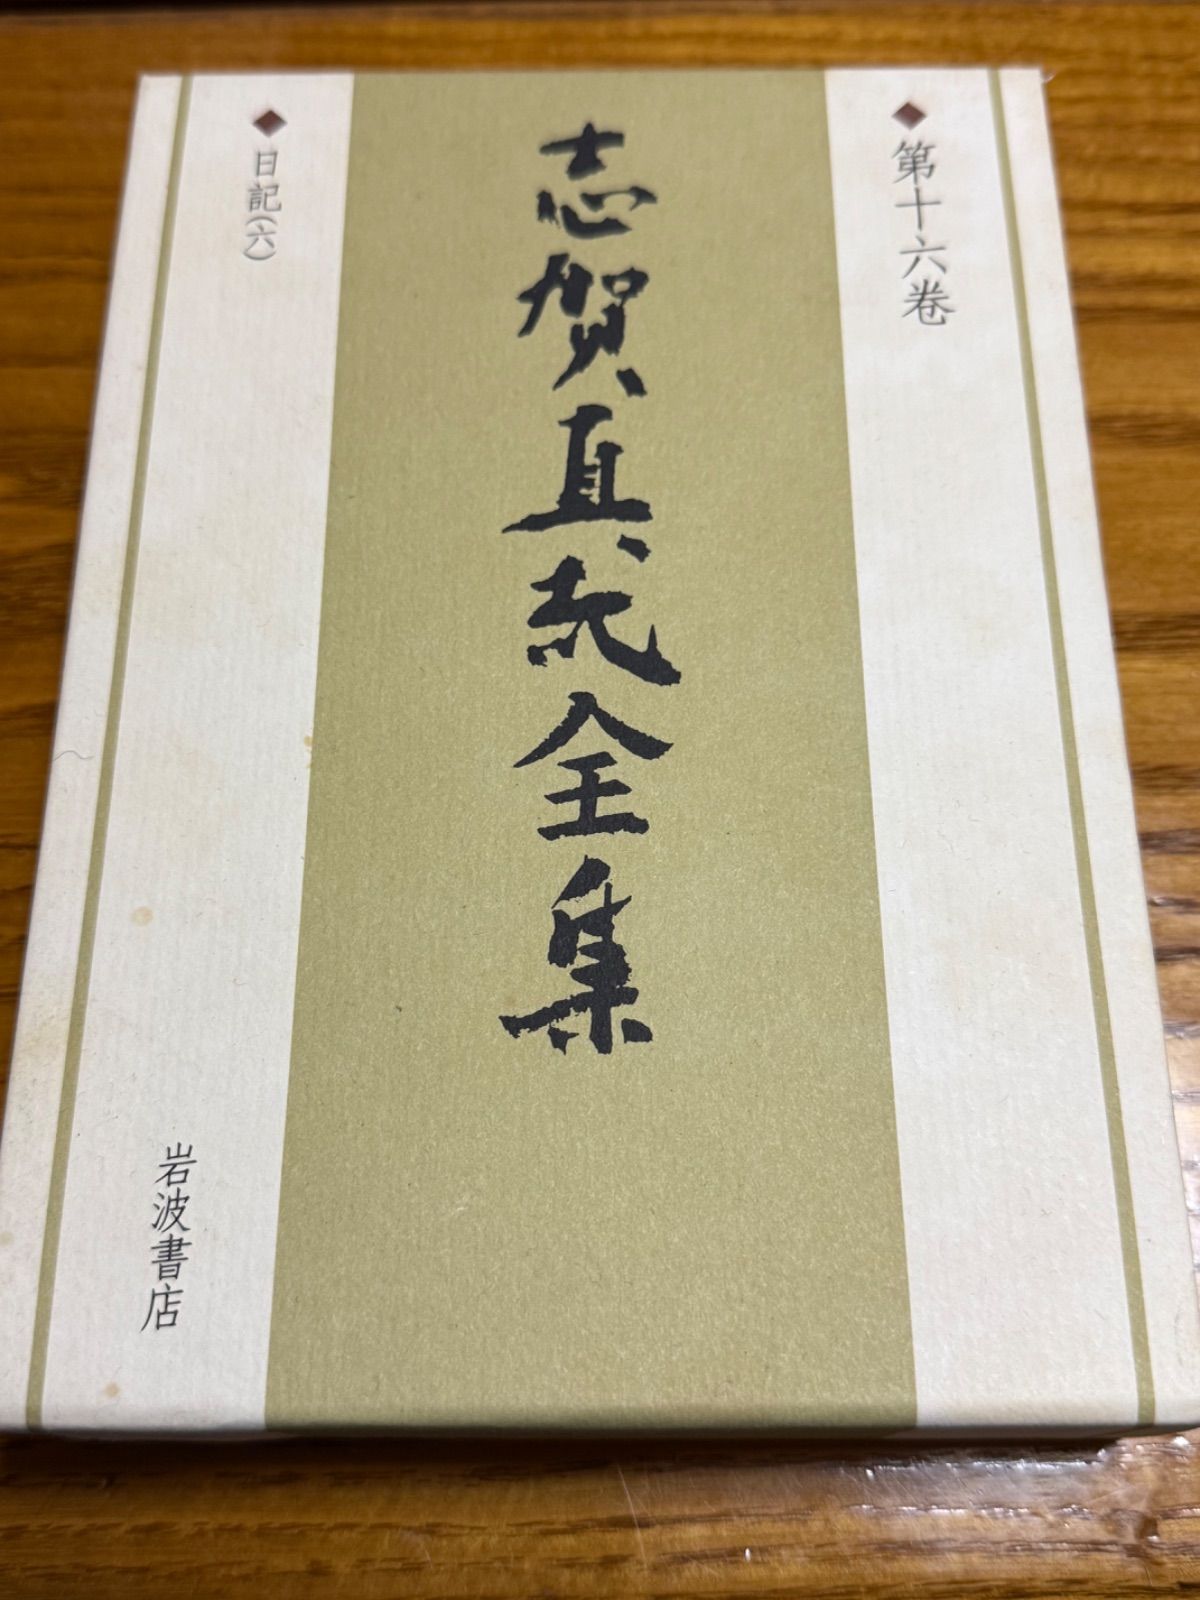 第十六巻
志賀直哉全集
日記(六)
岩波書店